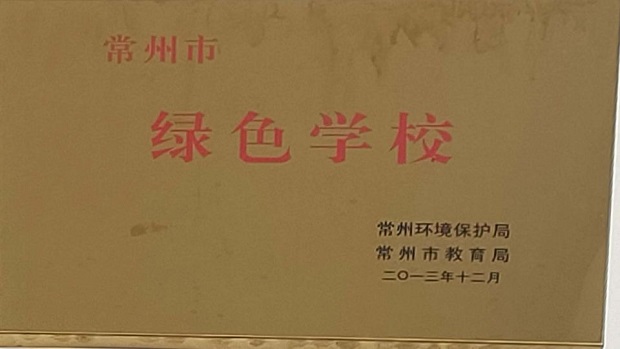 常州市
绿色学校
常州环境保护局
常州市教育局
二〇一三年十二月